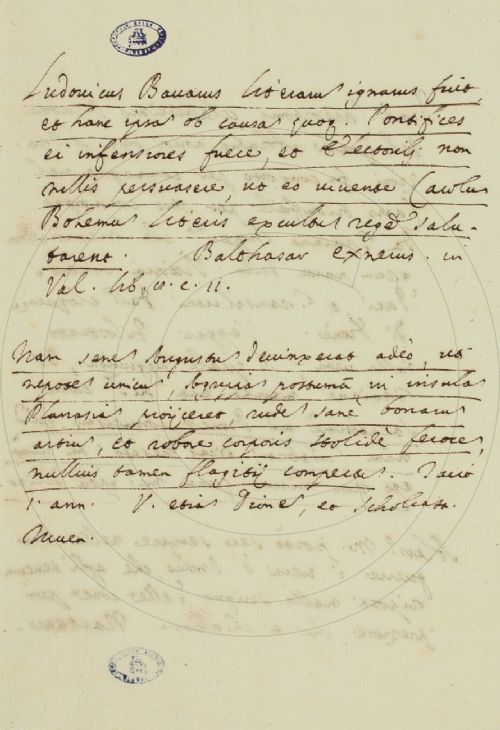 Ludovicus Bavarus literarum ignarus fuit,
et hanc ipsam ob causam quoq. Pontifices
ei infensiores fuere, et Electorib. non
nullis persuasere, ut eo vivente Carolum
Bohemum literis excultum regem salu-
tarent. Balthasar Exnerus. in
Val. lib. c. 11.
Nam senem Augustum devinxerat adeò, uti
nepotem unicum, Agrippam postumum in insulam
Planasiam proijceret, rudem sanè bonarum
artium, et robore corporis stolidè ferocem,
nullius tamen flagitij compertum. Tacit.
1. ann. V. etiam Dionem, et